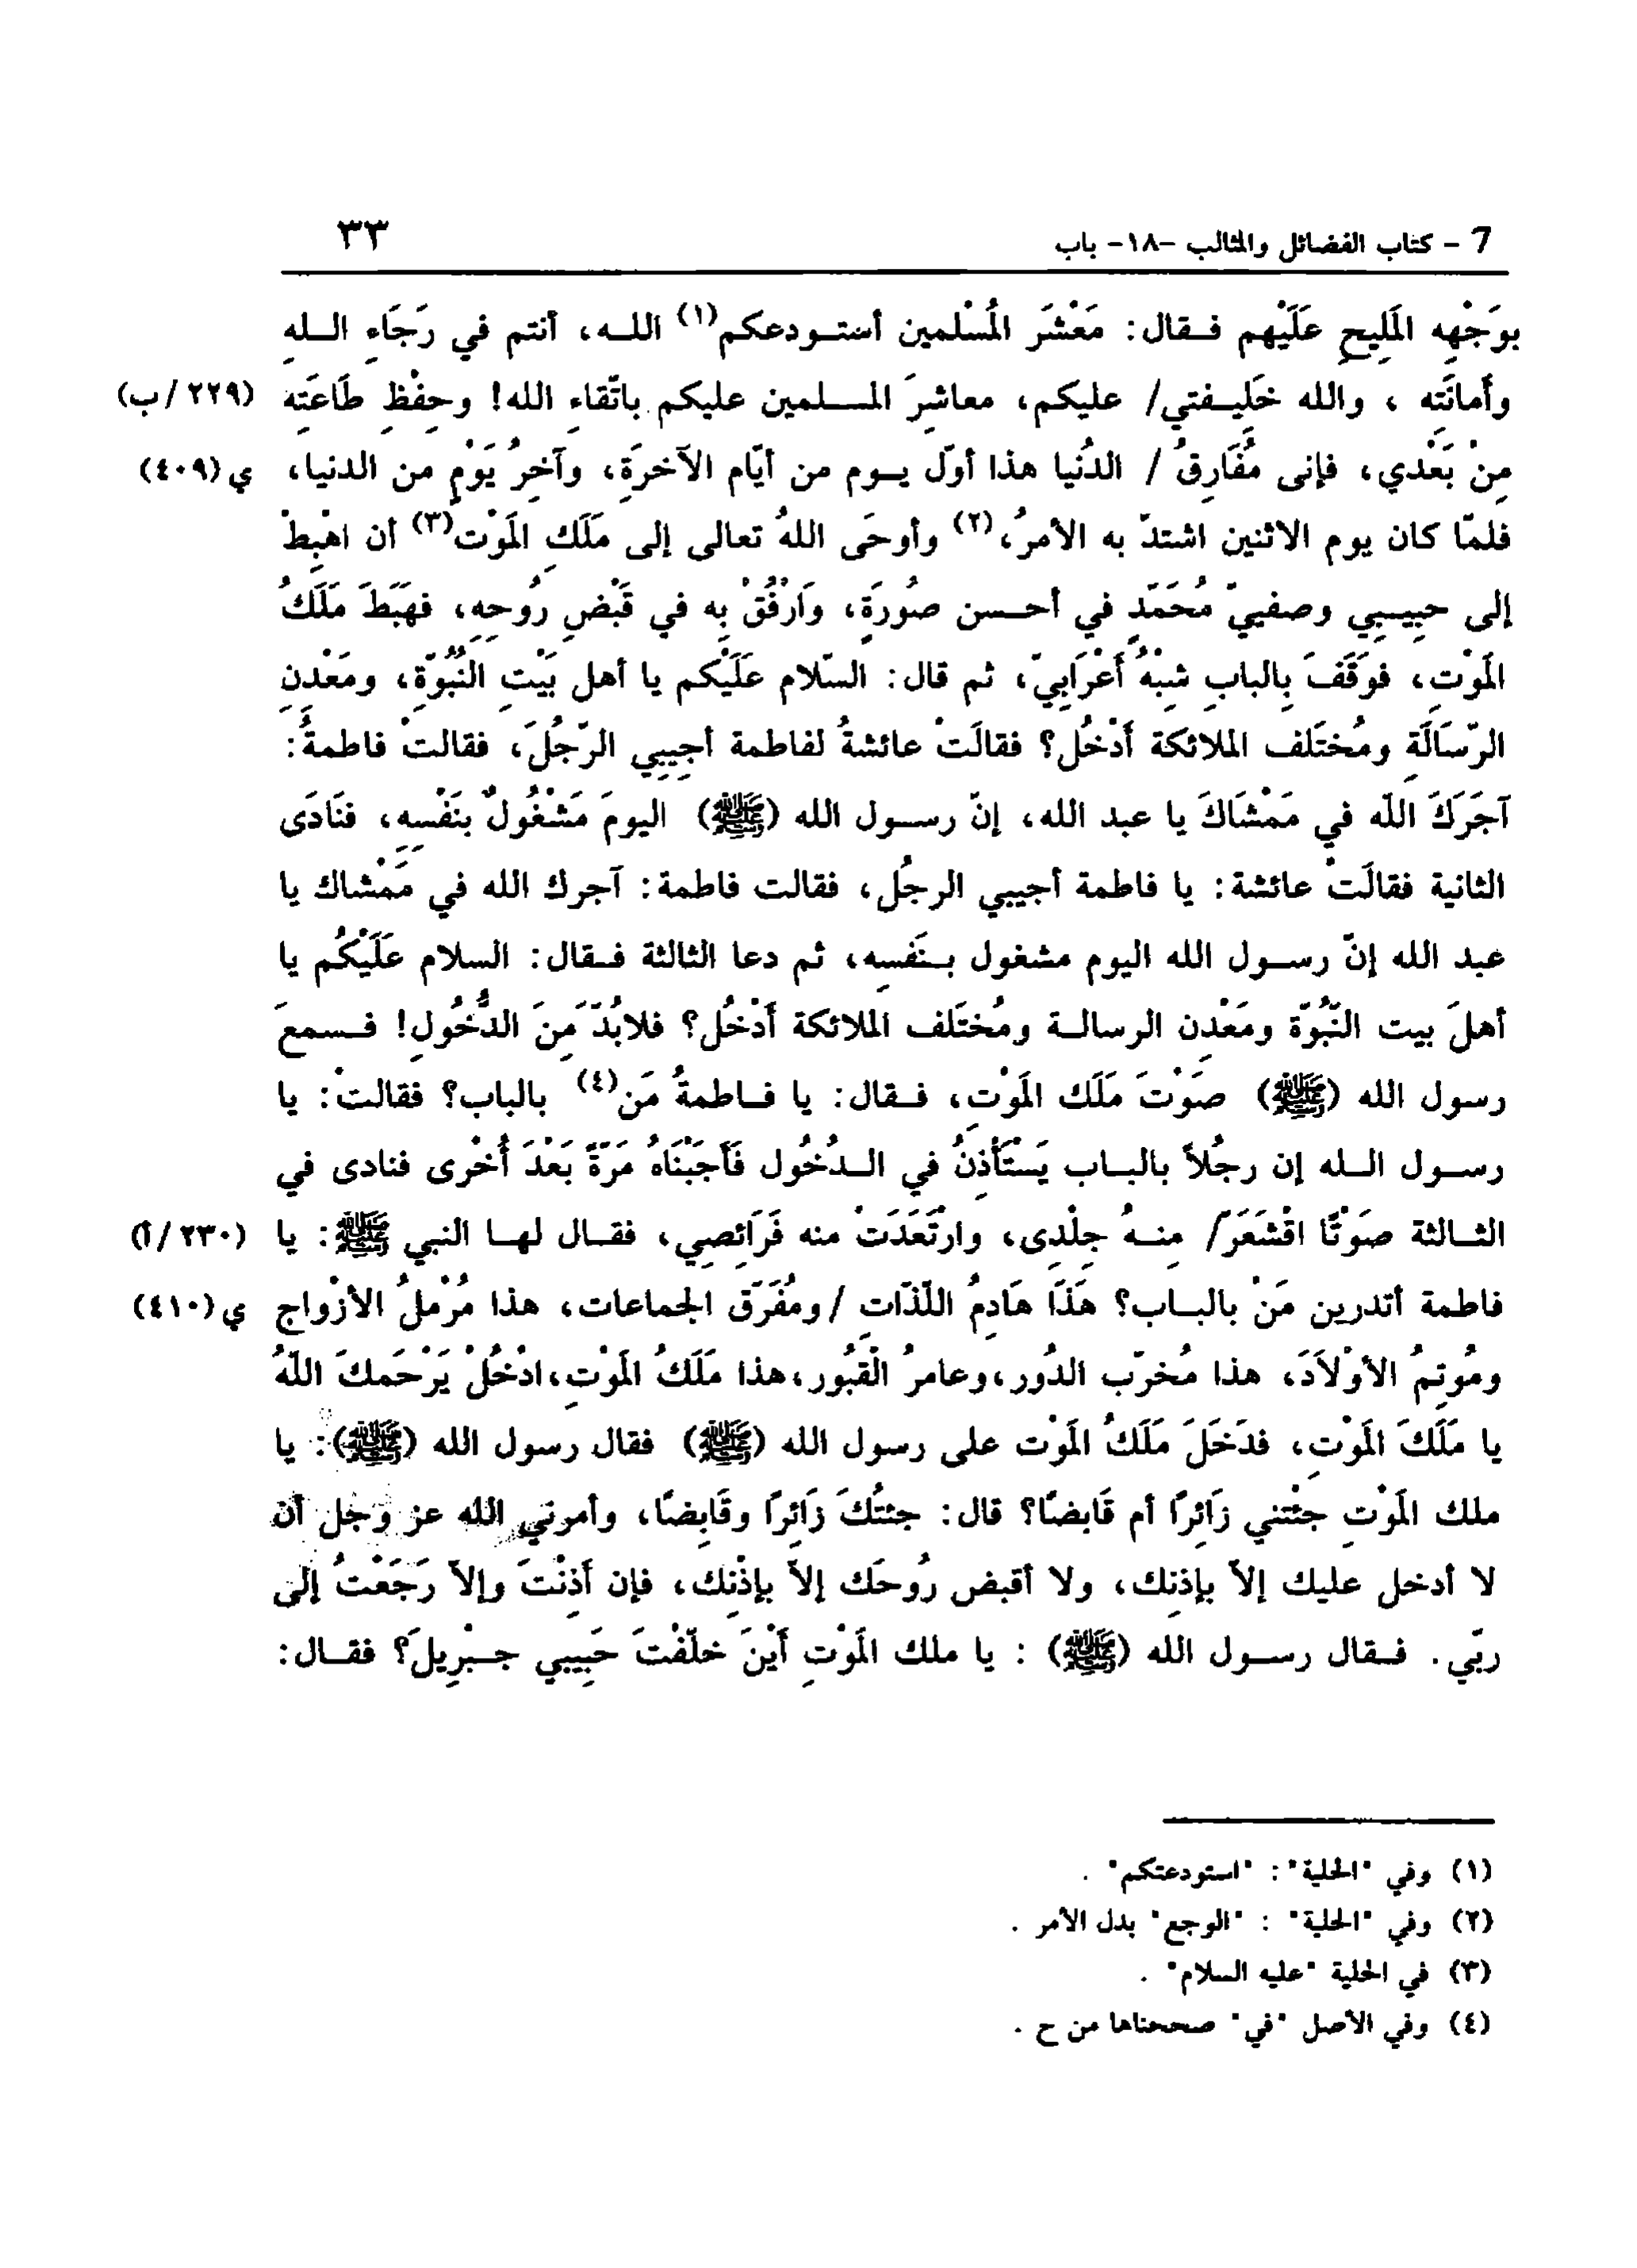 7 - كتاب الفضائل والمثالب -١٨- باب ٣٣
بوَجْهِه المَلِيحِ عَلَيْهم فـقال: مَعْشَرَ المُسْلمين أستـودعكم(١) اللـه، أنتم في رَجَاءِ الـلهِ
وأمانَتِه ، والله خَلِيـفتي/ عليكم، معاشِرَ المـسلمين عليكم باتّقاءِ الله! وحِفْظِ طَاعَتِه (٢٢٩/ب)
مِنْ بَعْدي، فإنى مُفَارِقُ / الدُنيا هذا أوّل يـوم من أيّام الآخرَة، وآخِرُ يَوْمٍ من الدنيا، ي(٤٠٩)
فلمّا كان يوم الاثنين اشتدّ به الأمرُ،(٢) وأوحَى اللهُ تعالى إلى مَلَكِ المَوْت(٣) أن اهْبِطْ
إلى حبِيـبي وصفييّ مُحَمّدٍ في أحـسن صُورَةٍ، وَارْفُقْ بِه في قَبْضِ رُوحِهِ، فهَبَطَ مَلَكُ
المَوْتِ، فوَقَفَ بِالبابِ شِبْهُ أَعْرَابِيّ، ثم قال: السّلام عَلَيْكم يا أهل بَيْتِ النُّبُوّة، ومَعْدِنِ
الرّسَالَةِ ومُختَلَف الملائكة أَدْخُل؟ فقالَتْ عائشةُ لفاطمة أجِيبِي الرّجُلَ، فقالتْ فاطمةُ:
آجَرَكَ اللّه في مَمْشَاكَ يا عبد الله، إنّ رسـول الله (ﷺ) اليومَ مَشْغُولٌ بنَفْسِهِ، فنَادَى
الثانية فقالَتْ عائشة: يا فاطمة أجيبي الرجُل، فقالت فاطمة: آجرك الله في مَمْشاك يا
عبد الله إنّ رسـول الله اليوم مشغول بـنَفسِه، ثم دعا الثالثة فـقال: السلام عَلَيْكُم يا
أهلَ بيت النّبُوّة ومَعْدِن الرسالـة ومُختَلَف الملائكة أَدْخُل؟ فلابُدّ مِنَ الدُّخُولِ! فـسمعَ
رسول الله (ﷺ) صَوْتَ مَلَك المَوْتِ، فـقال: يا فـاطمةُ مَن(٤) بالباب؟ فقالتْ: يا
رسـول الـله إن رجُلاً بالبـاب يَسْتَأْذِنُ في الـدُخُول فَأَجَبْنَاهُ مَرّةً بَعْدَ أُخْرى فنادى في
الثـالثة صَوْتًا اقْشَعَرّ/ مِنـهُ جِلْدِى، وارْتَعَدَتْ منه فَرَائصِي، فقـال لهـا النبي ﷺ: يا (٢٣٠/أ)
فاطمة أتدرين مَنْ بالبـاب؟ هَذَا هَادِمُ اللّذّاتِ /ومُفَرّق الجماعات، هذا مُرْملُ الأزْواج ي(٤١٠)
ومُوتِمُ الأوْلاَدَ، هذا مُخرّب الدُور،وعامرُ الْقبُور،هذا مَلَكُ المَوْتِ،ادْخُلْ يَرْحَمكَ اللّهُ
يا مَلَكَ المَوْتِ، فدَخَلَ مَلَكُ المَوْت على رسول الله (ﷺ) فقال رسول الله (ﷺ): يا
ملك المَوْتِ جئْتني زَائرًا أم قَابضًا؟ قال: جئتُكَ زَائِرًا وقَابِضًا، وأمرني الله عز وجل أن
لا أدخل عليك إلاّ بإذنك، ولا أقبض رُوحَك إلاّ بإذْنِك، فإن أَذِنْتَ وإلاّ رَجَعْتُ إلى
ربّي. فـقال رسـول الله (ﷺ) : يا ملك المَوْتِ أَيْنَ خلّفْتَ حَبِيبي جـبْرِيلَ؟ فقـال:
(١) وفي "الحلية": "استودعتكم" .
(٢) وفي "الحلية" : "الوجع" بدل الأمر .
(٣) في الحلية "عليه السلام" .
(٤) وفي الأصل "في" صححناها من ح .